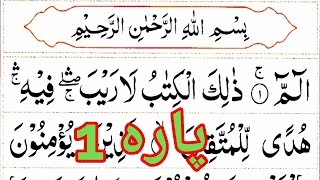 بِسْمِ اللهِ الرَّحْمٰنِ الرَّحِيْمِ
الٓمّٓ ۚ﴿۱﴾ ذٰلِكَ الْكِتٰبُ لَا رَيْبَ ۛۖ فِيْهِ ۛۚ
هُدًى لِّلْمُتَّقِيْنَ الَّذِيْنَ يُؤْمِنُوْنَ
پارہ 1